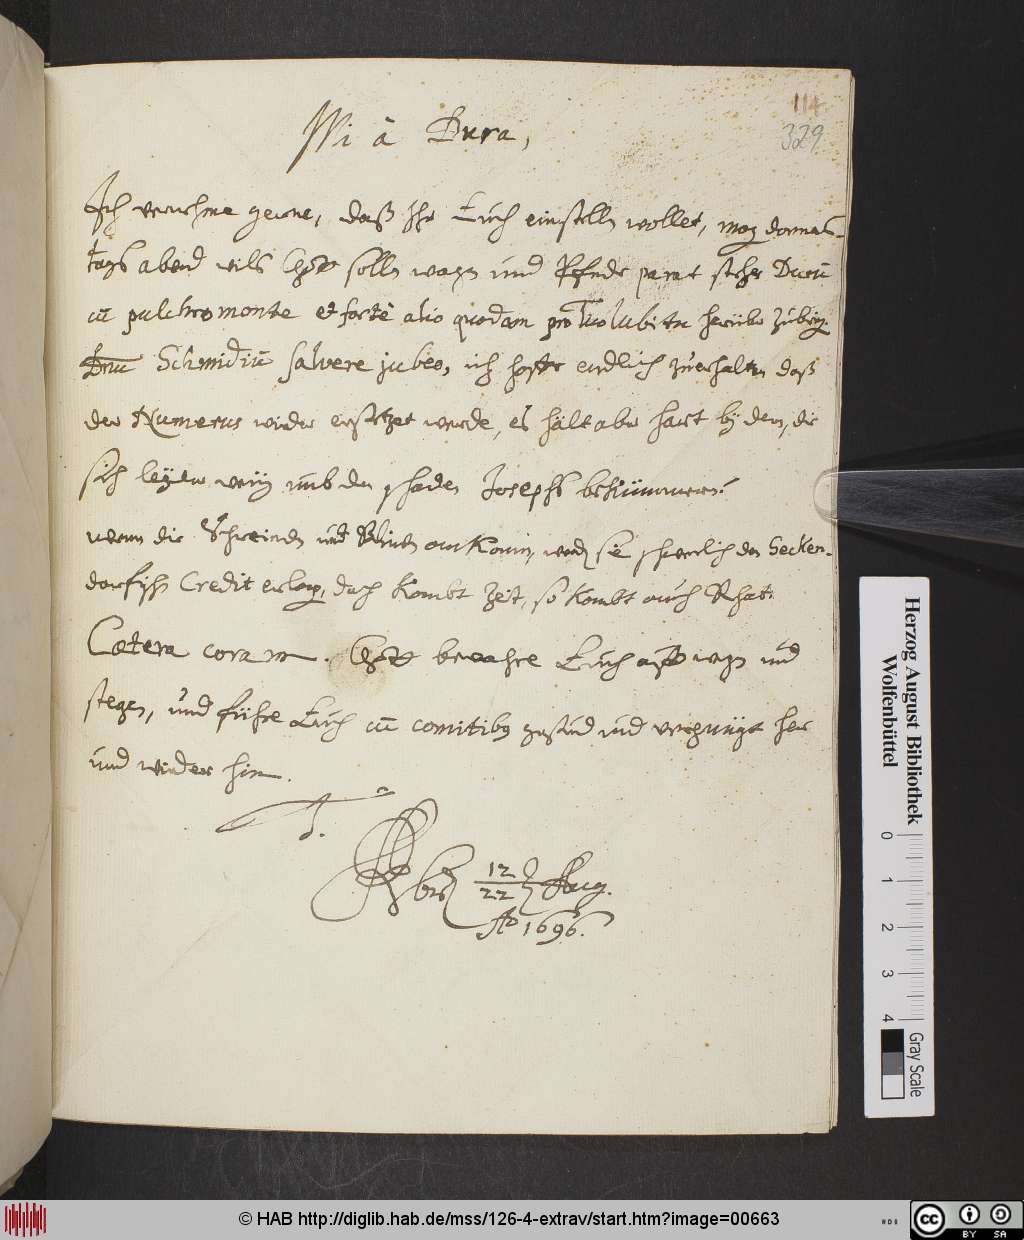 114
329
Mi à Bura,
Ich vernehme gerne, daß Ihr Euch einstelln wollet, morgen donners-
tags abend wils Gott solln wagen und Pferde parat stehen Ducū
cū pulchromonte et forte alio quodam pro volubitu herüber zubring.
Dnū Schmidiū salvere jubeo, ich hoffe endlich zuerhalten daß
der Numerus wieder ersetzet werde, es hält aber hart bey den, die
sich leyder wenig umb den schaden Josephs bekümmern!
wenn die Freinden und ankomm, werd sie schwerlich den Secken-
dorfisch Credit erlang, doch kombt Zeit, so kombt auch Rhat.
Cætera coram. Gott bewahre Euch auf wegn und
stegen, und führe Euch cū comitibq gesund und vergnügt her
und wieder hin.
12
22 Aug.
Ao 1696.
Herzog August Bibliothek
Wolfenbüttel
0 1 2 3 4
Gray Scale
© HAB http://diglib.hab.de/mss/126-4-extrav/start.htm?image=00663
cc BY SA